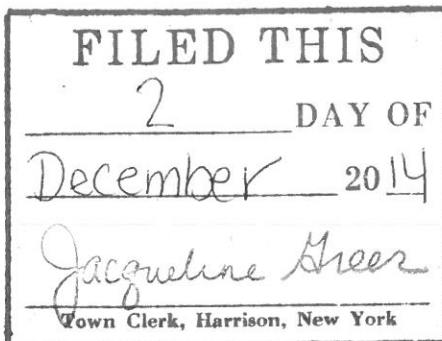 FILED THIS
2 DAY OF
December 2014
Jacqueline Greer
Town Clerk, Harrison, New York